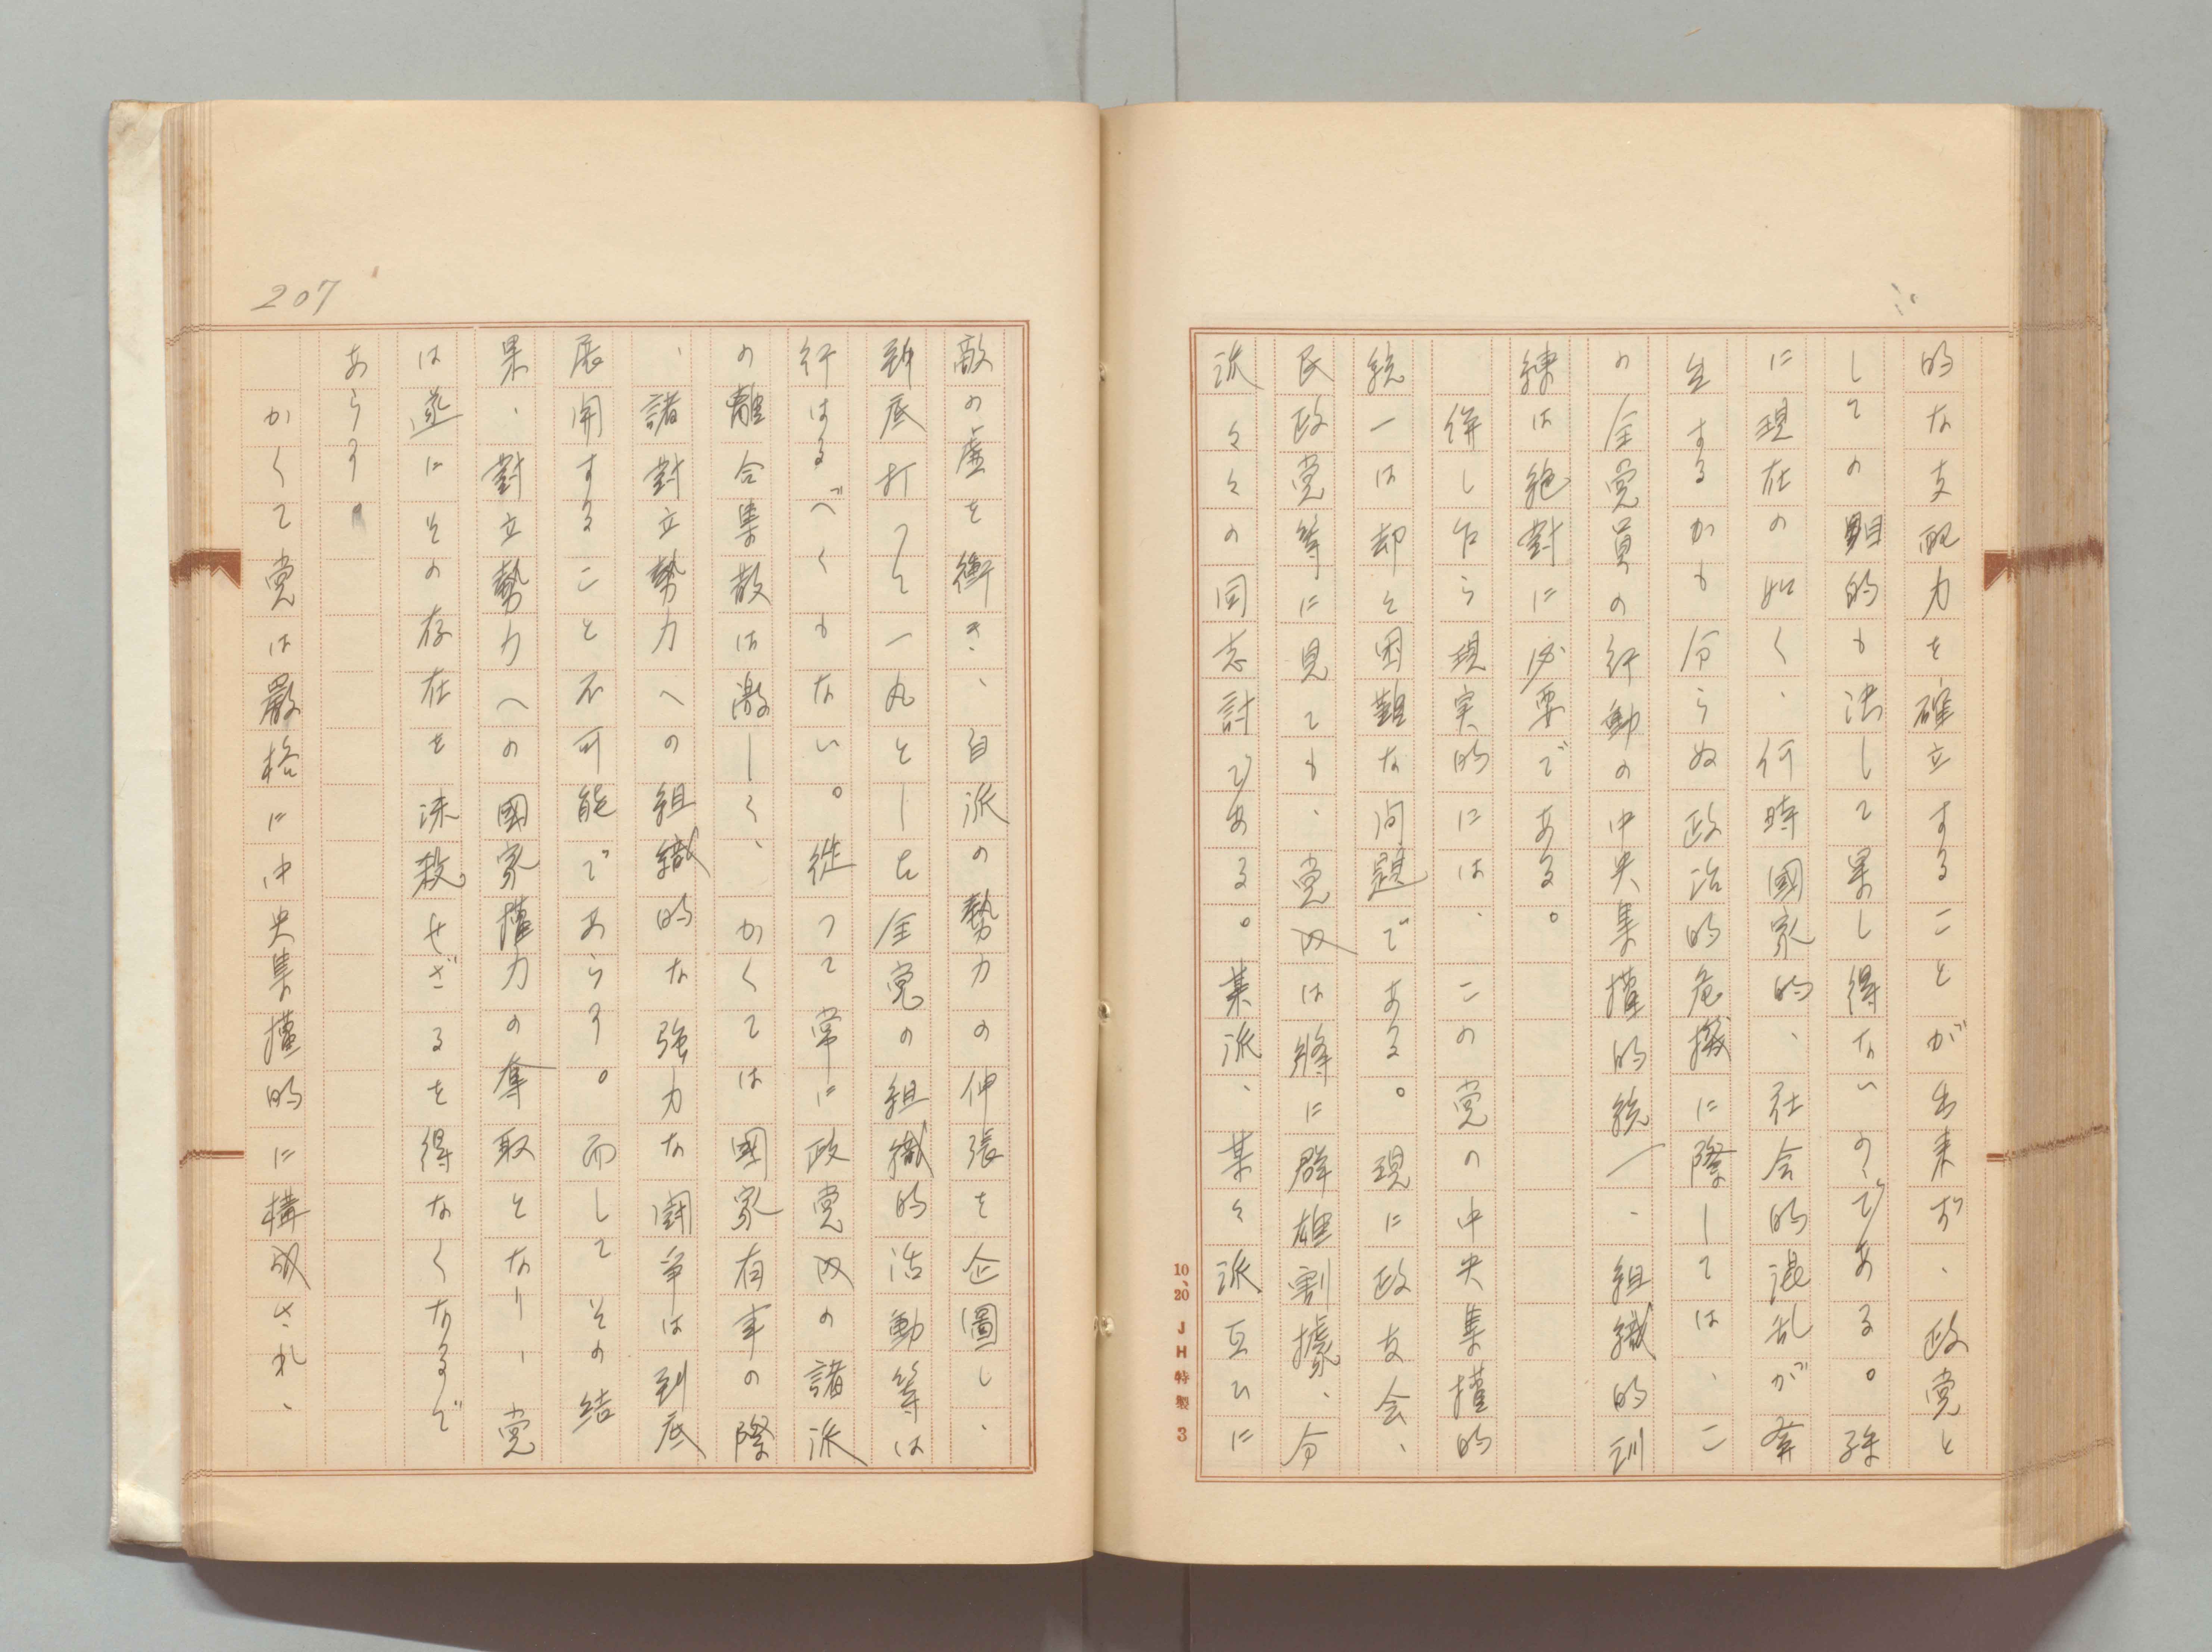 的な支配力を確立することが出来ず、政党と
しての目的も決して果し得ないのである。殊
に現在の如く、何時國家的、社会的混乱が發
生するかも分らぬ政治的危機に際しては、こ
の全党員の行動の中央集權的統一、組織的訓
練は絶對に必要である。
併し乍ら現実的には、この党の中央集權的
統一は却々困難な問題である。現に政友会、
民政党等に見ても、党内は將に群雄割據、分
派々々の同志討である。某派、某々派互ひに
10、20 JH特製 3
207
敵の虚を衝き、自派の勢力の伸張を企圖し、
到底打つて一丸とした全党の組織的活動等は
行はるべくもない。従つて常に政党内の諸派
の離合集散は激しく、かくては國家有事の際
、諸對立勢力への組織的な強力な闘争は到底
展開すること不可能であらう。而してその結
果、對立勢力への國家權力の奪取となり、党
は遂にその存在を抹殺せざるを得なくなるで
あらう。
かくて党は嚴格に中央集權的に構成され、